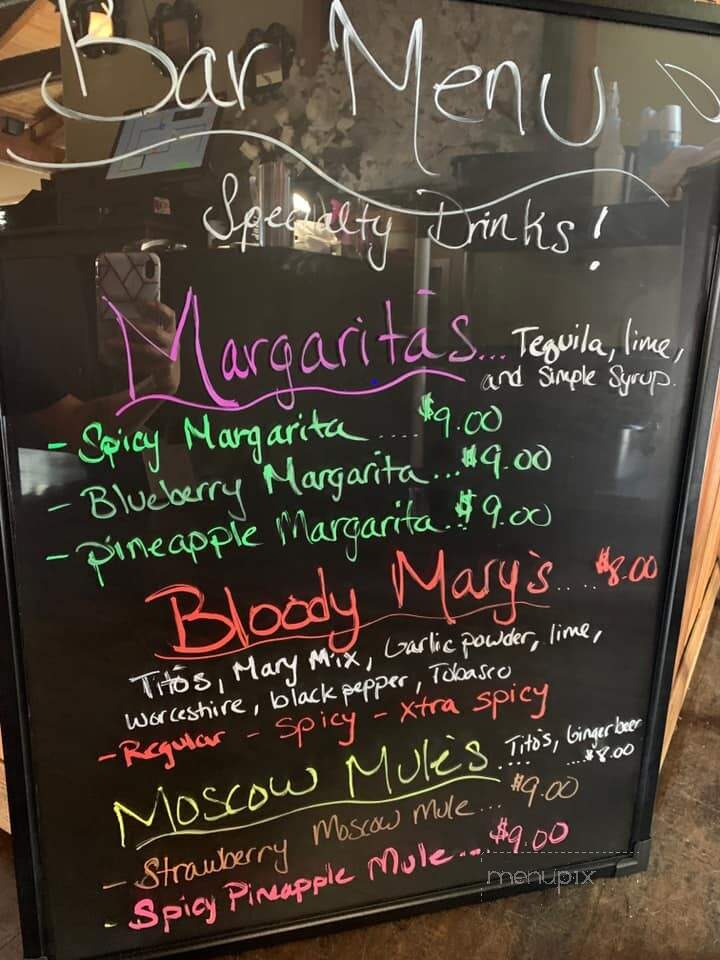 Bar Menu
Specialty Drinks!
Margarita's... Tequila, lime,
and Simple Syrup.
- Spicy Margarita .... $9.00
- Blueberry Margarita... $9.00
- Pineapple Margarita.. $9.00
Bloody Mary's.... $8.00
Tito's, Mary Mix, Garlic powder, lime,
worceshire, black pepper, Tobasco
- Regular - Spicy - Xtra spicy
Moscow Mule's.... Tito's, Ginger beer
....$8.00
- Strawberry Moscow Mule... $9.00
- Spicy Pineapple Mule... $9.00
menupix